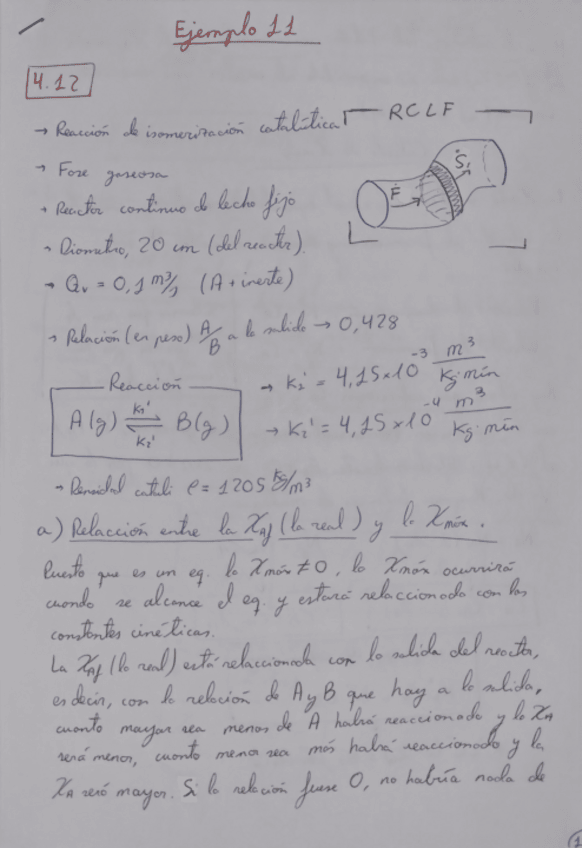 Ejemplo 11
4.12
RCLF
→ Reacción de isomerización catalítica
→ Fase gaseosa
→ Reactor continuo de lecho fijo
→ Diametro, 20 cm (del reactor).
→ Qv = 0,1 m³/s (A + inerte)
→ Relación (en peso) A/B a la salida → 0,428
F
S
Reacción
A(g) ⇌ B(g)
k₁'
k₂'
→ k₁' = 4,15×10⁻³ m³/Kg·min
→ k₂' = 4,15×10⁻⁴ m³/Kg·min
→ Densidad catali ρ = 1205 Kg/m³
a) Relacción entre la XAf (la real) y la Xmáx.
Puesto que es un eq. la Xmáx ≠ 0, la Xmáx ocurrirá
cuando se alcance el eq. y estará relaccionado con las
constantes cinéticas.
La XAf (la real) está relaccionada con la salida del reactor,
es decir, con la relación de A y B que hay a la salida,
cuanto mayor sea menos de A habrá reaccionado y la XA
será menor, cuanto menor sea más habrá reaccionado y la
XA será mayor. Si la relación fuese 0, no habría nada de
1